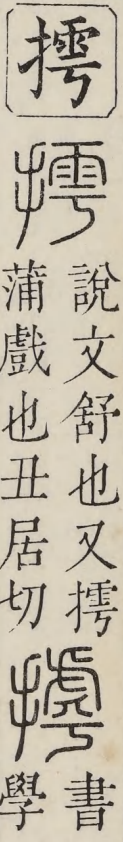 摴
摴
說文舒也又摴
蒲戲也丑居切
書
學